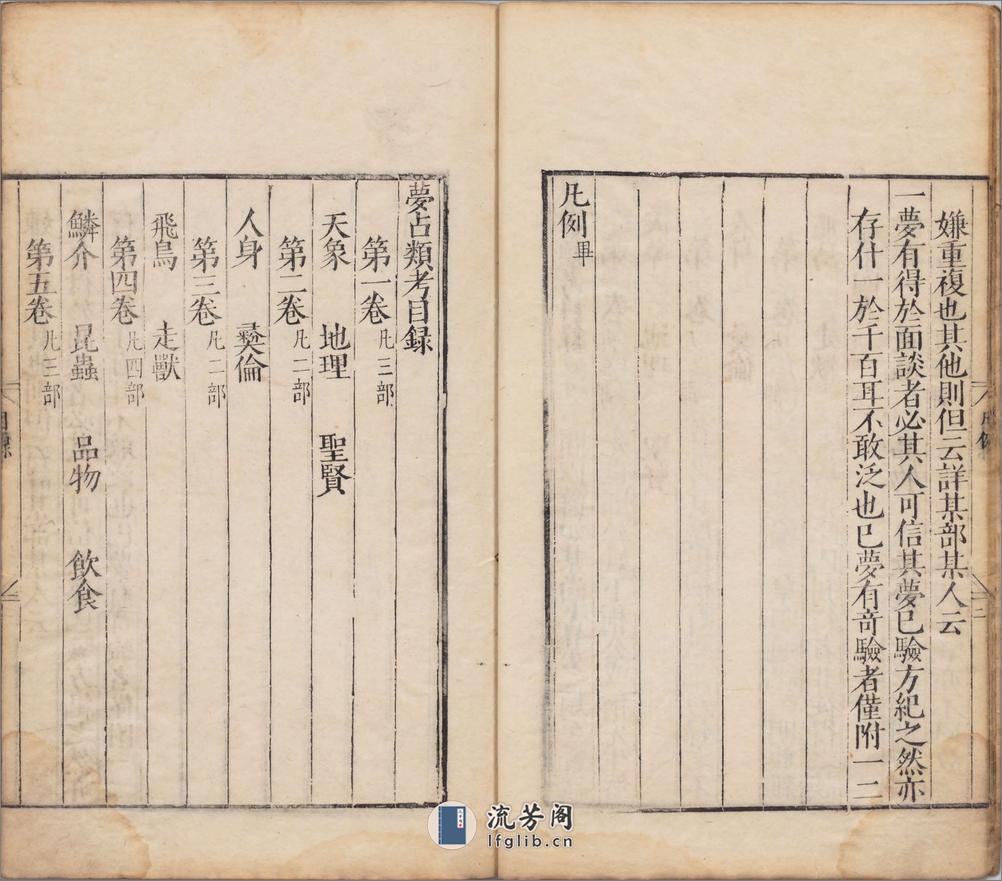 嫌重複也其他則但云詳某部某人云
一夢有得於面談者必其人可信其夢已驗方紀之然亦
存什一於千百耳不敢泛也已夢有奇驗者僅附一二
凡例畢
夢占類考目録
第一卷凡三部
天象 地理 聖賢
第二卷凡二部
人身 彝倫
第三卷凡二部
飛鳥 走獸
第四卷凡四部
鱗介 昆蟲 品物 飲食
第五卷凡三部
流芳阁
lfglib.cn